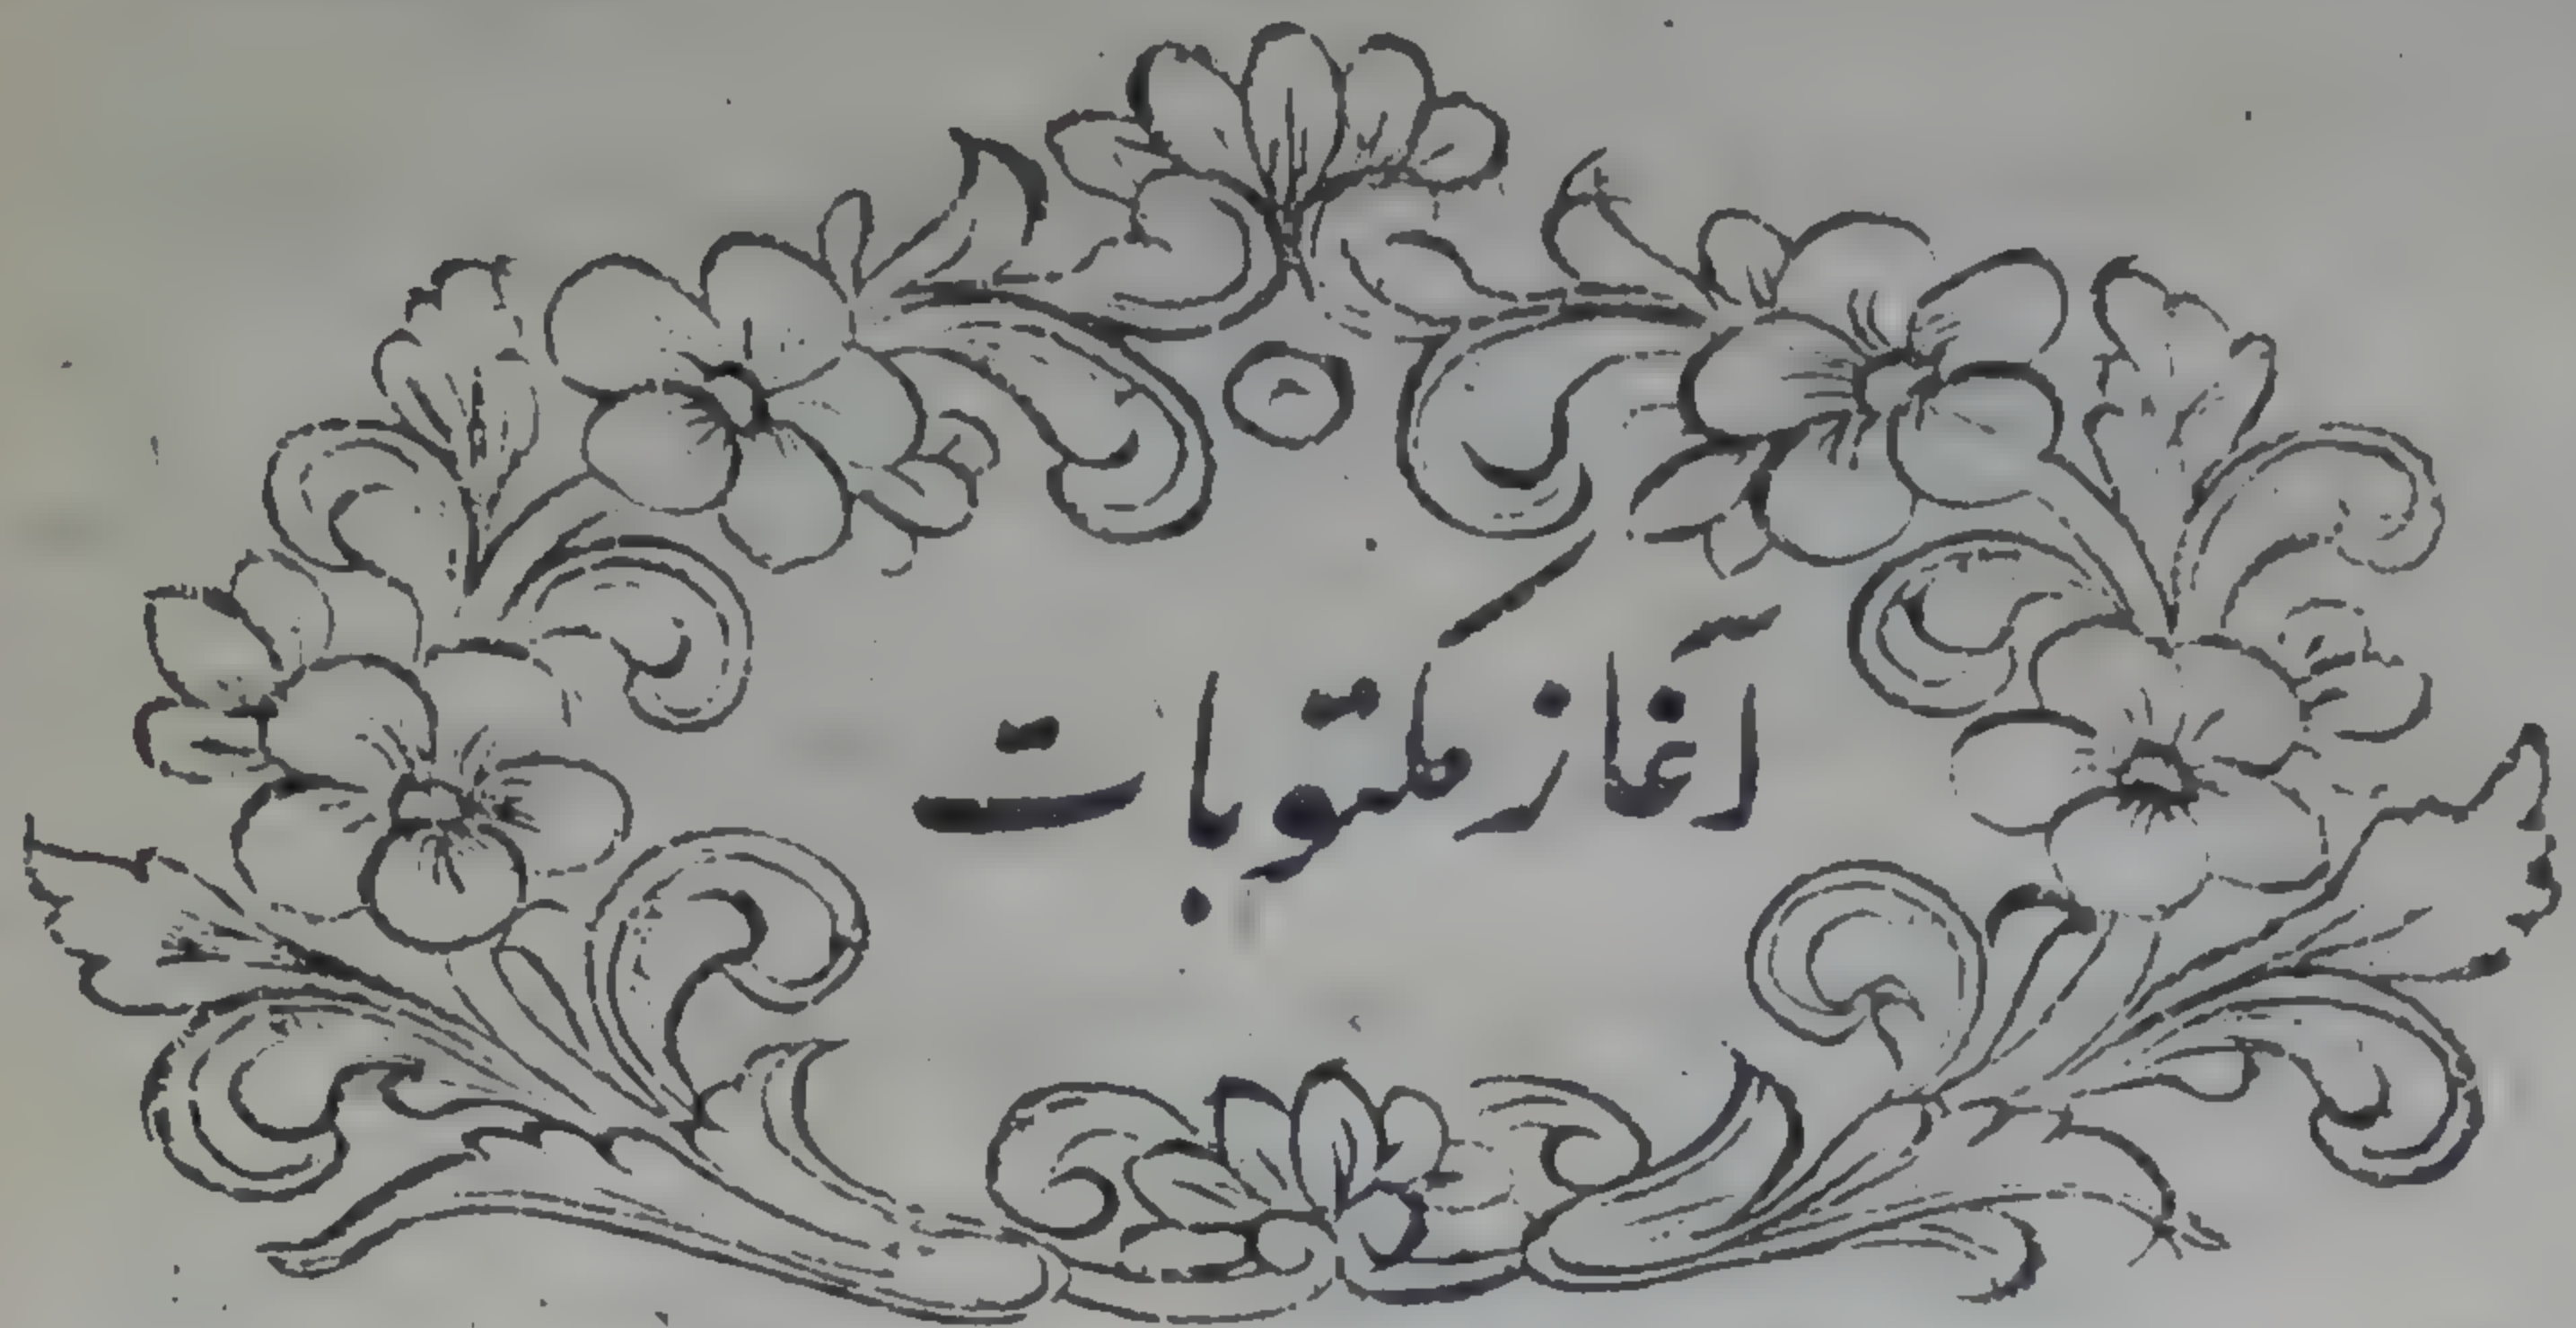 آغاز مکتوبات